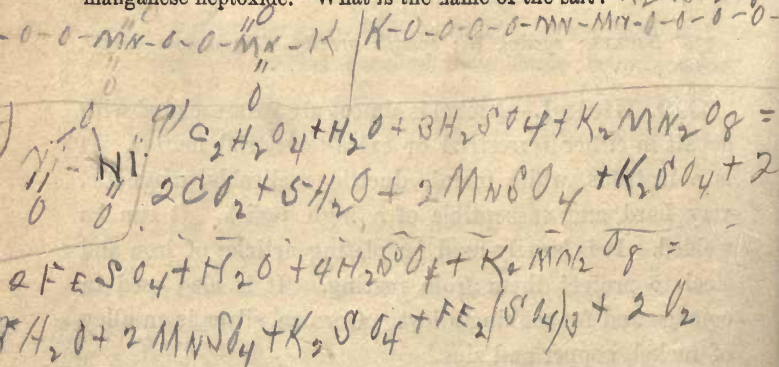 manganese heptoxide. What is the name of the salt?
-O-O-MN-O-O-MN-K | K-O-O-O-O-MN-MN-O-O-O-O-
O
O
O O
O
Ni-Ni
O O
9) C2H2O4+H2O+3H2SO4+K2MN2O8=
2CO2+5H2O+2MNSO4+K2SO4+2
2FESO4+H2O+4H2SO4+K2MN2O8=
H2O+2MNSO4+K2SO4+FE2(SO4)3+2O2